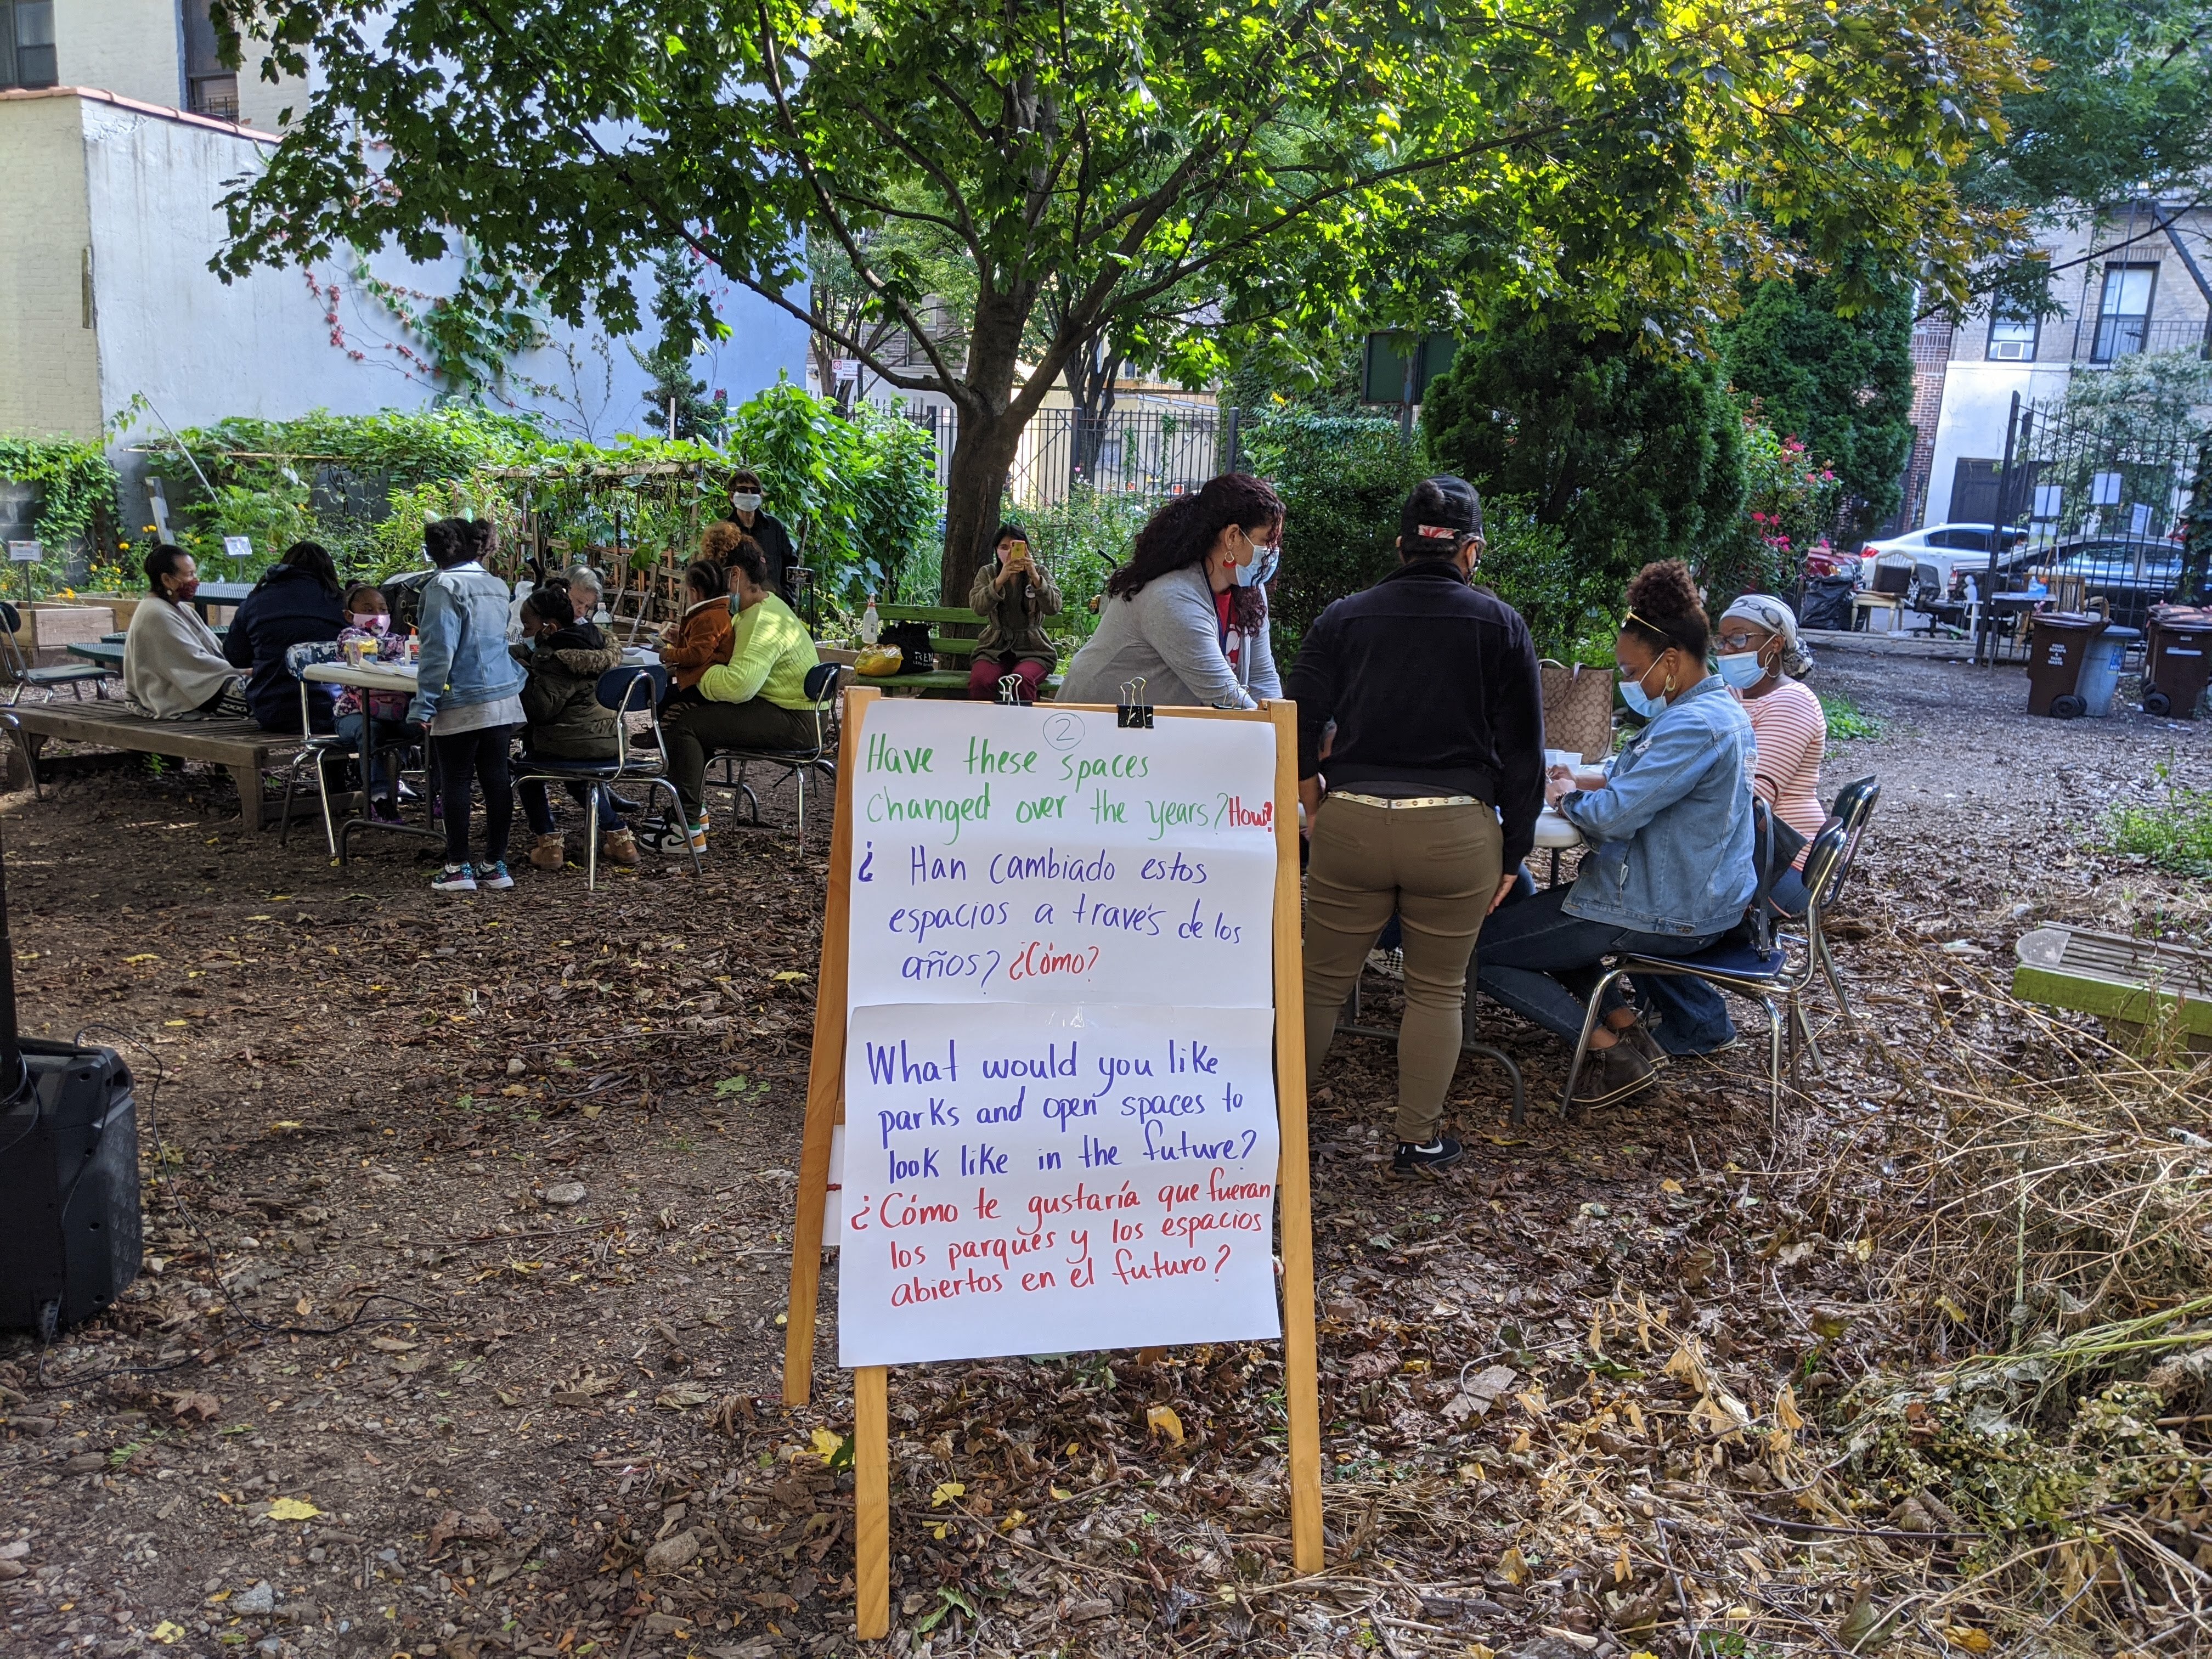 2
Have these spaces
changed over the years? How?
¿ Han cambiado estos
espacios a través de los
años? ¿Cómo?
What would you like
parks and open spaces to
look like in the future?
¿Cómo te gustaría que fueran
los parques y los espacios
abiertos en el futuro?